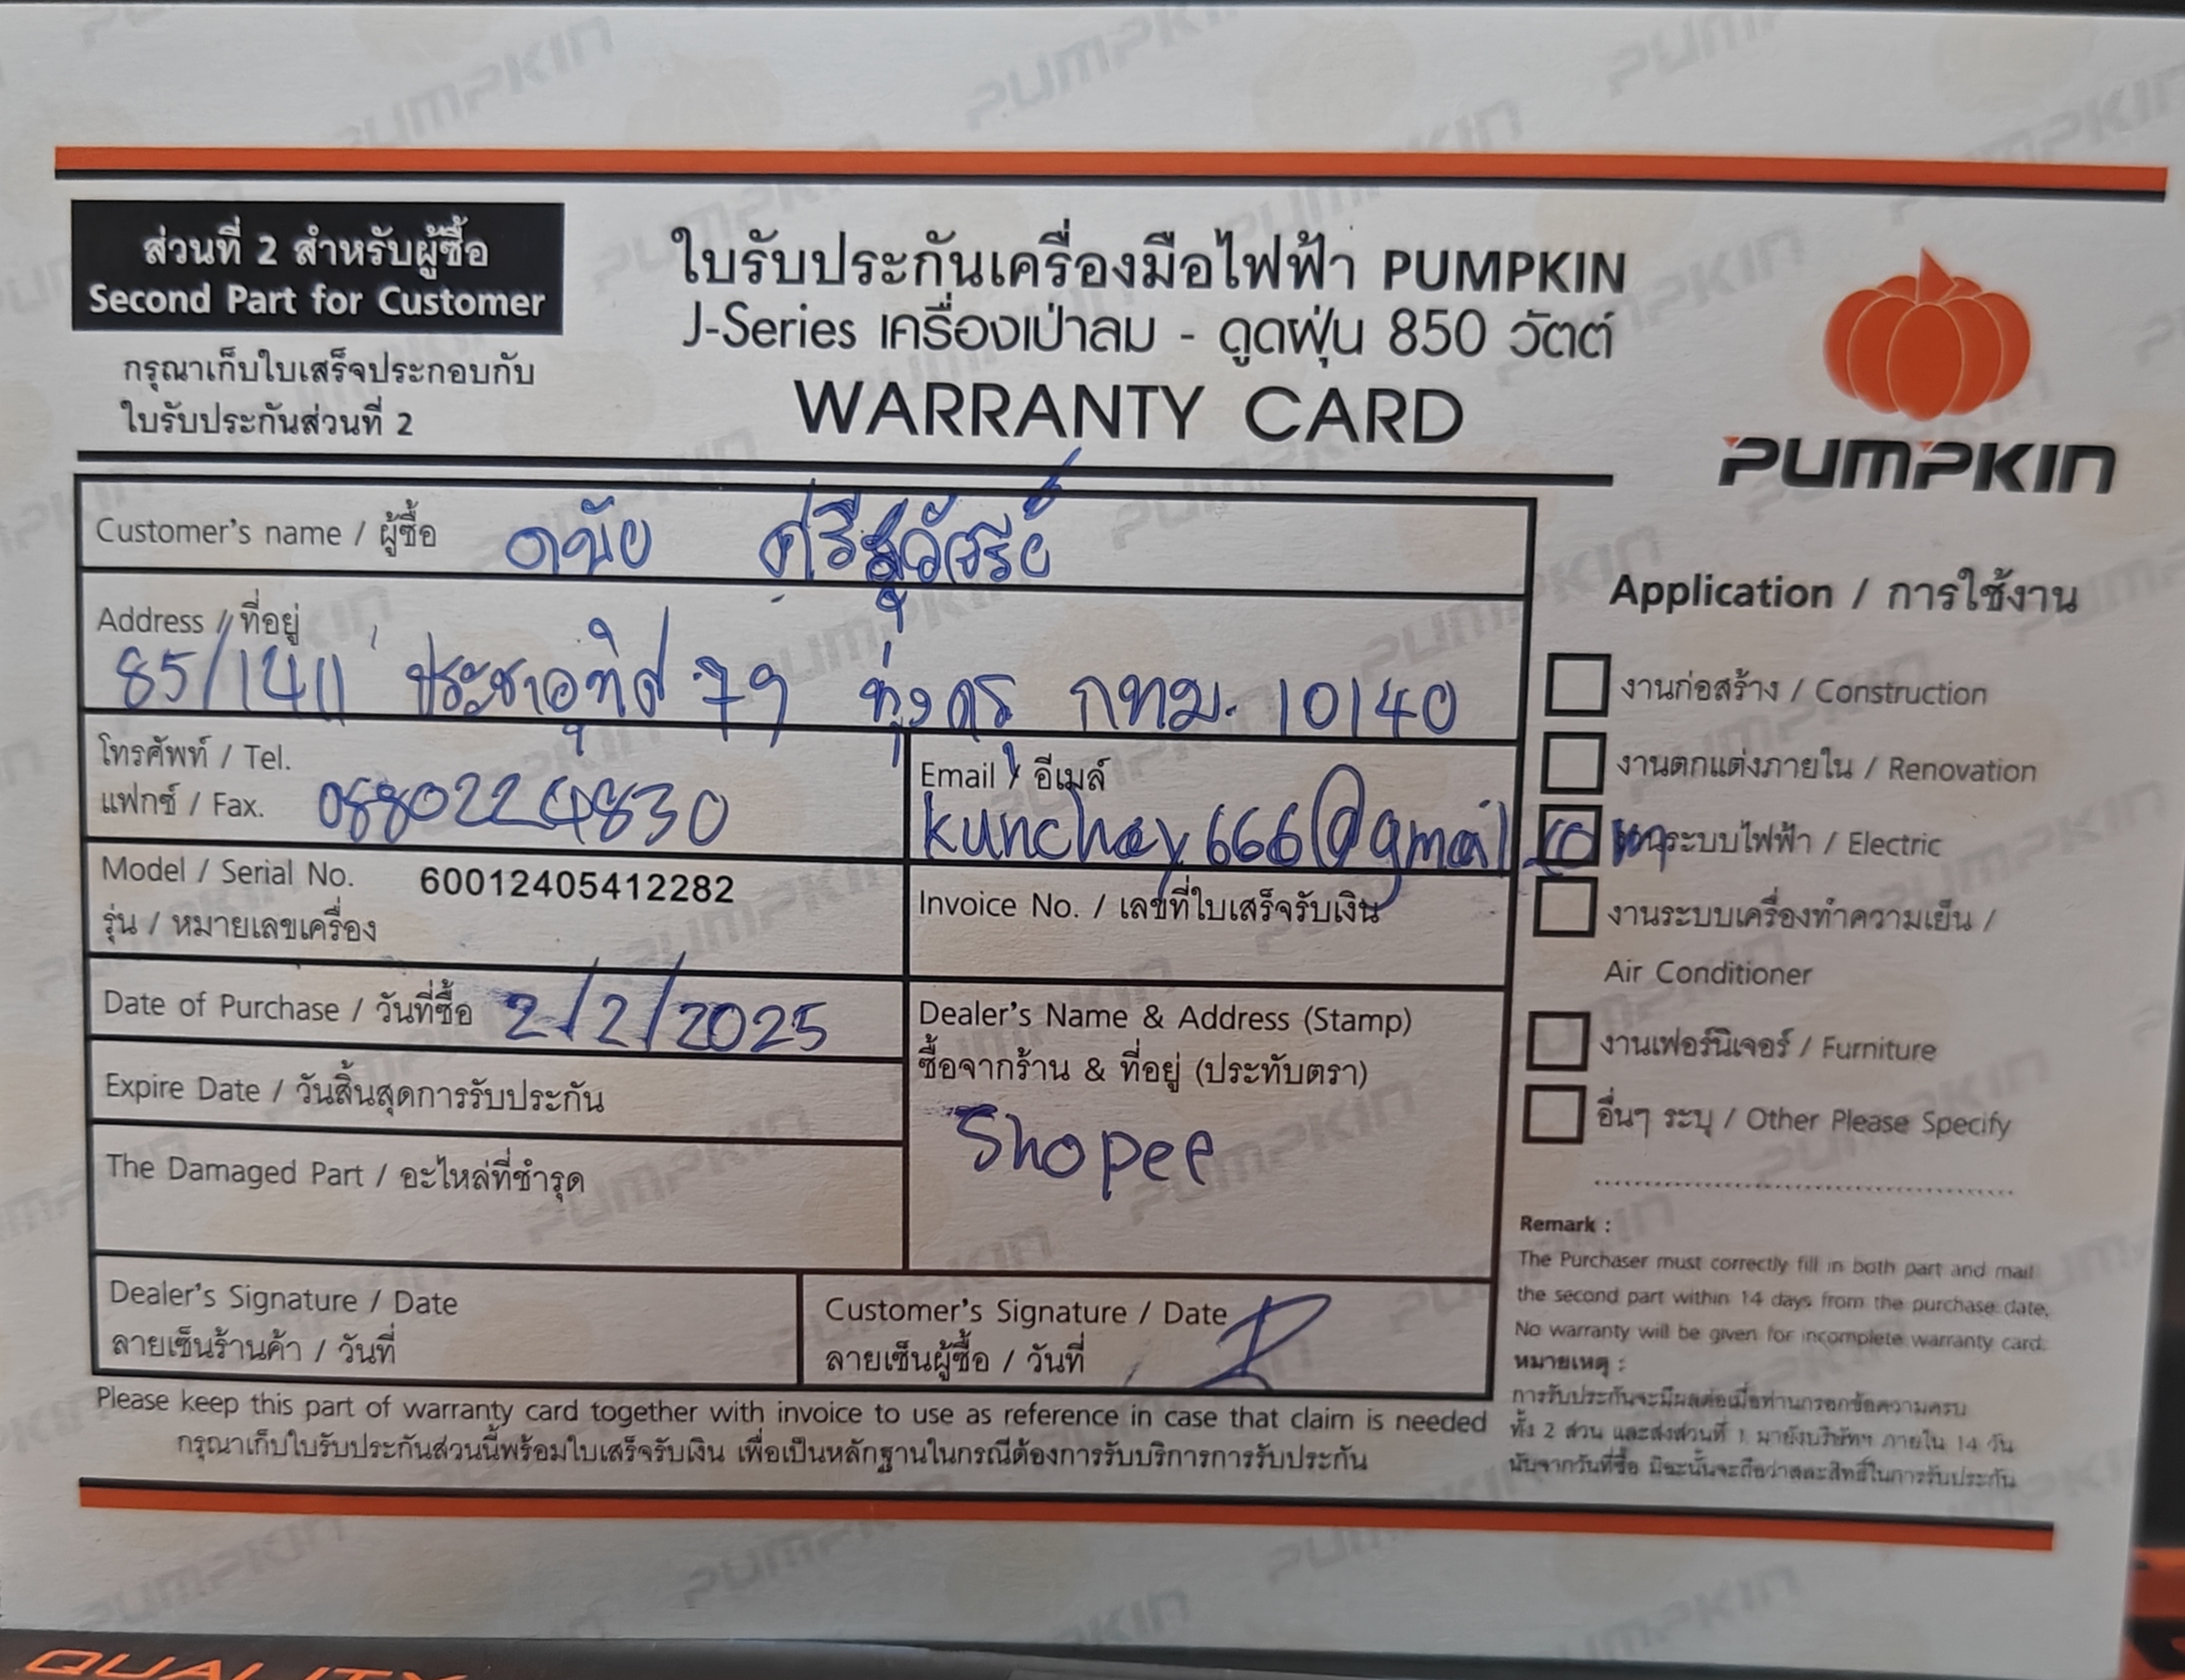 ส่วนที่ 2 สำหรับผู้ซื้อ
Second Part for Customer
กรุณาเก็บใบเสร็จประกอบกับ
ใบรับประกันส่วนที่ 2
ใบรับประกันเครื่องมือไฟฟ้า PUMPKIN
J-Series เครื่องเป่าลม - ดูดฝุ่น 850 วัตต์
WARRANTY CARD
PUMPKIN
Customer's name / ผู้ซื้อ ดนัย
Address / ที่อยู่
85/1411 ประชาอุทิศ 79 ทุ่งครุ กทม. 10140
โทรศัพท์ / Tel.
แฟกซ์ / Fax. 0880224830
Email / อีเมล์
kunchay666@gmail.com
Model / Serial No. 60012405412282
รุ่น / หมายเลขเครื่อง
Invoice No. / เลขที่ใบเสร็จรับเงิน
Date of Purchase / วันที่ซื้อ 2/2/2025
Expire Date / วันสิ้นสุดการรับประกัน
The Damaged Part / อะไหล่ที่ชำรุด
Dealer's Name & Address (Stamp)
ซื้อจากร้าน & ที่อยู่ (ประทับตรา)
Shopee
Dealer's Signature / Date
ลายเซ็นร้านค้า / วันที่
Customer's Signature / Date
ลายเซ็นผู้ซื้อ / วันที่
Please keep this part of warranty card together with invoice to use as reference in case that claim is needed
กรุณาเก็บใบรับประกันส่วนนี้พร้อมใบเสร็จรับเงิน เพื่อเป็นหลักฐานในกรณีต้องการรับบริการการรับประกัน
Application / การใช้งาน
งานก่อสร้าง / Construction
งานตกแต่งภายใน / Renovation
งานระบบไฟฟ้า / Electric
งานระบบเครื่องทำความเย็น /
Air Conditioner
งานเฟอร์นิเจอร์ / Furniture
อื่นๆ ระบุ / Other Please Specify
Remark :
The Purchaser must correctly fill in both part and mail
the second part within 14 days from the purchase date.
No warranty will be given for incomplete warranty card.
หมายเหตุ :
การรับประกันจะมีผลต่อเมื่อท่านกรอกข้อความครบ
ทั้ง 2 ส่วน และส่งส่วนที่ 1 มายังบริษัทฯ ภายใน 14 วัน
นับจากวันที่ซื้อ มิฉะนั้นจะถือว่าสละสิทธิ์ในการรับประกัน
QUALITY